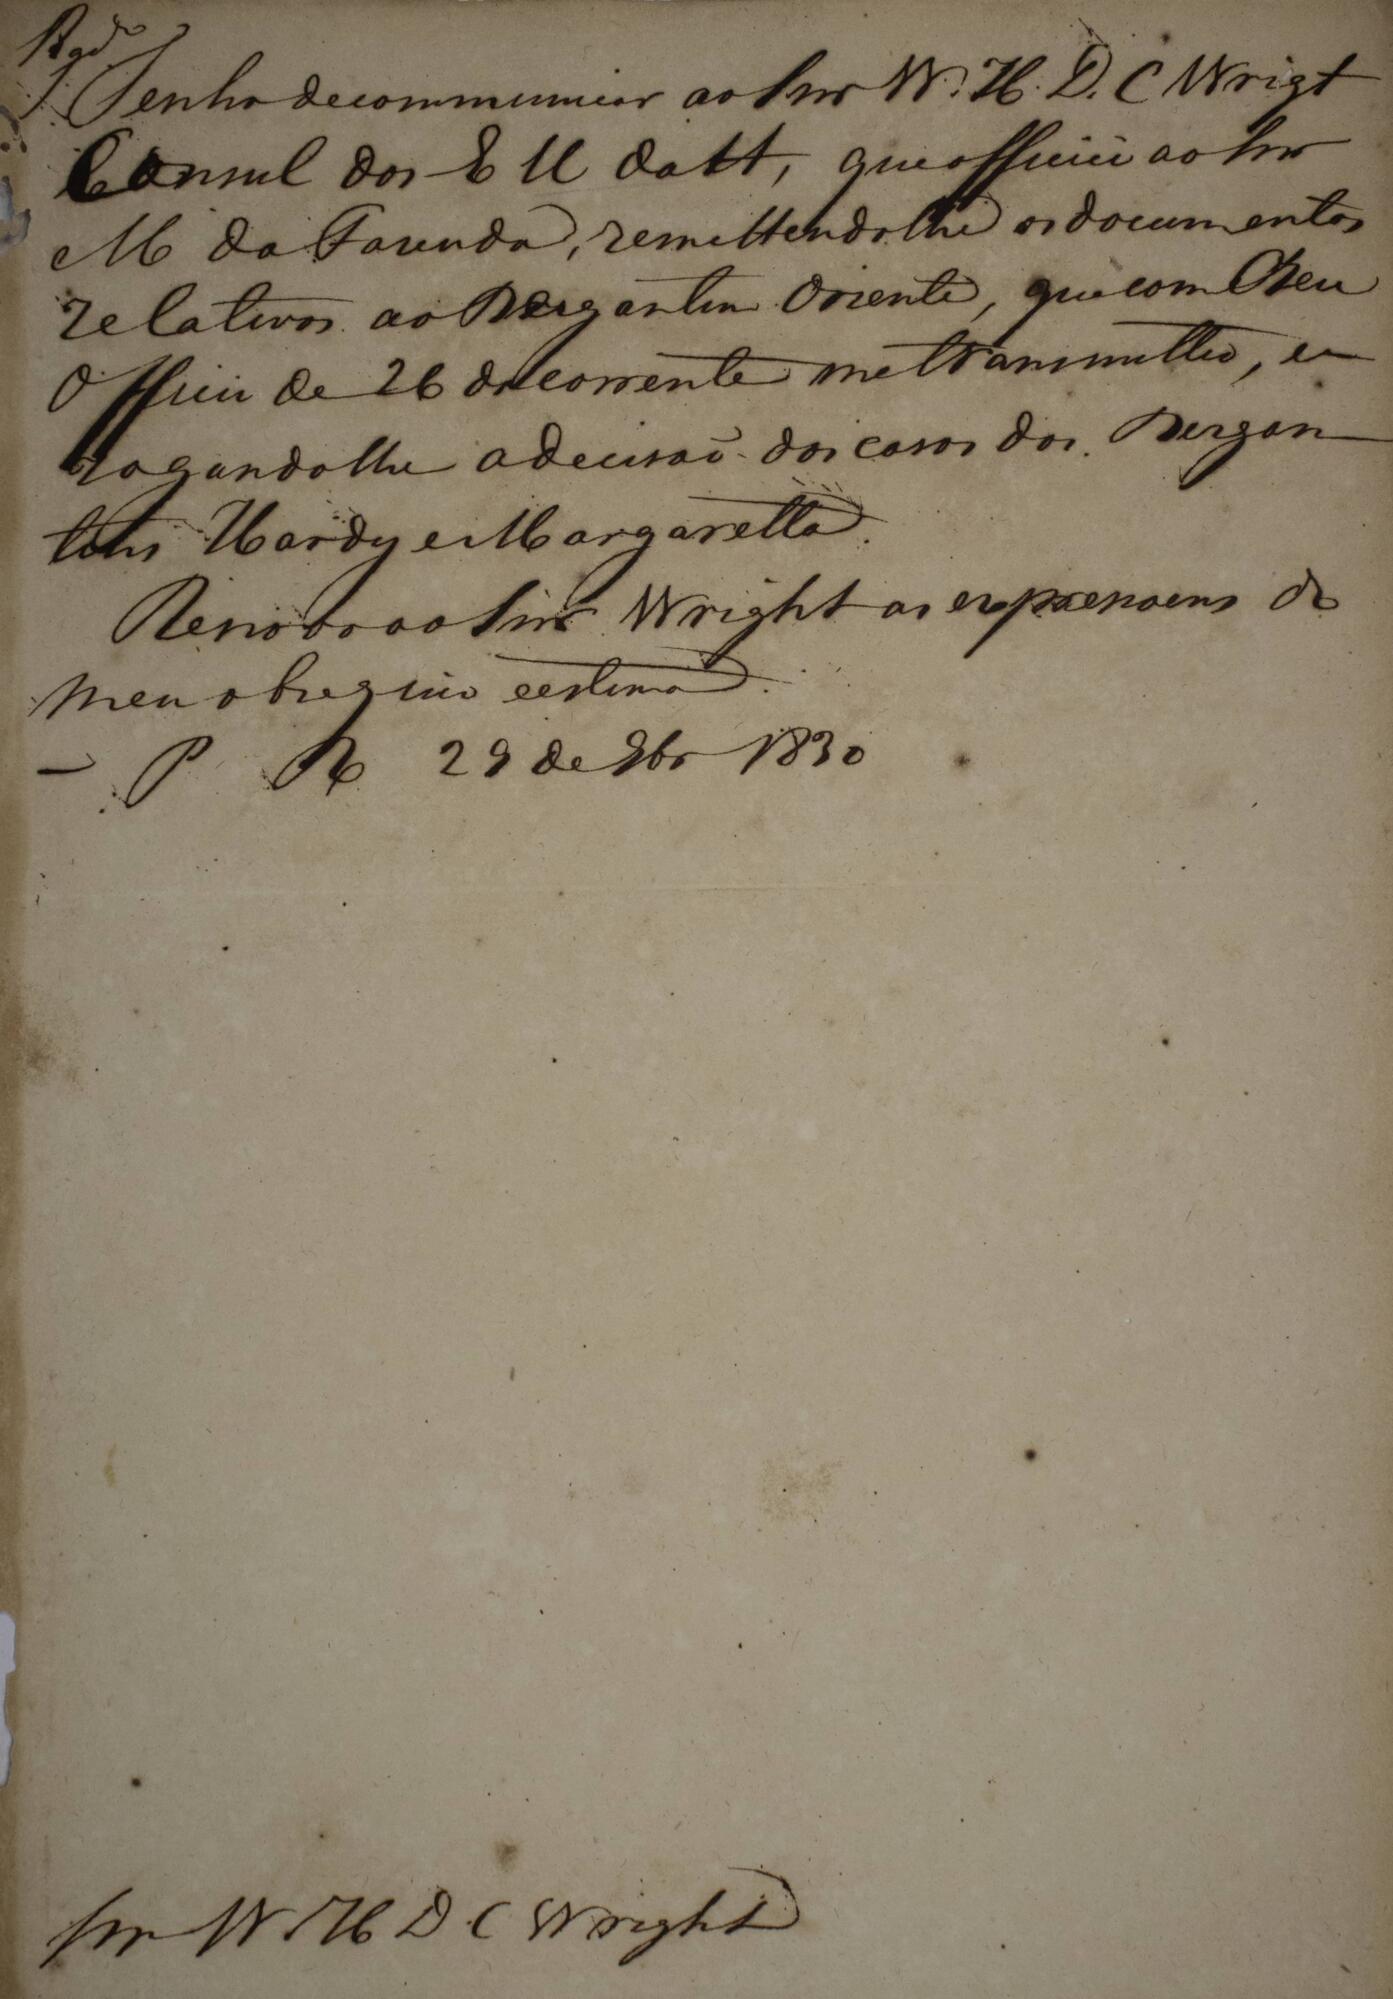 Rgdo
Tenho de communicar ao Snr W. H. D. C Wrigt
Consul dos E U da A, que officiei ao Snr
M da Fazenda, remettendo lhe os documentos
relativos ao Bergantim Oriente, que com Seu
Officio de 26 do corrente me transmittio, e
rogando lhe a decisaõ dos casos dos Bergan
tins Hardy e Margaretta.
Renovo ao Snr Wright as expressoens do
meu obsequio e estima.
P R 29 de 9br 1830
Snr W H D C Wright